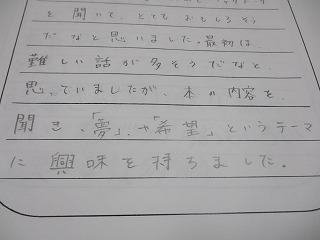 を 聞いて、とても おもしろそう
だ なと 思いました。最初は、
難しい話が 多そうだなと、
思っていましたが、本の内容を、
聞き、「夢」、や「希望」というテーマ
に 興味を持ちました。